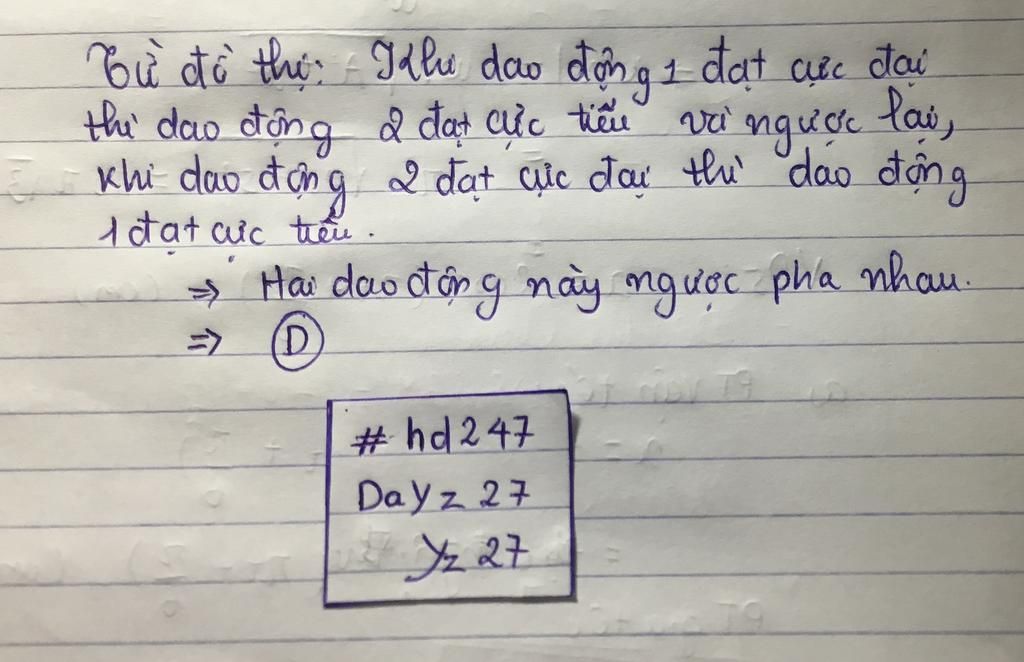 Từ đồ thị: Khi dao động 1 đạt cực đại
thì dao động 2 đạt cực tiểu và ngược lại,
khi dao động 2 đạt cực đại thì dao động
1 đạt cực tiểu.
⇒ Hai dao động này ngược pha nhau.
⇒ D
# hd247
Dayz 27
Yz 27